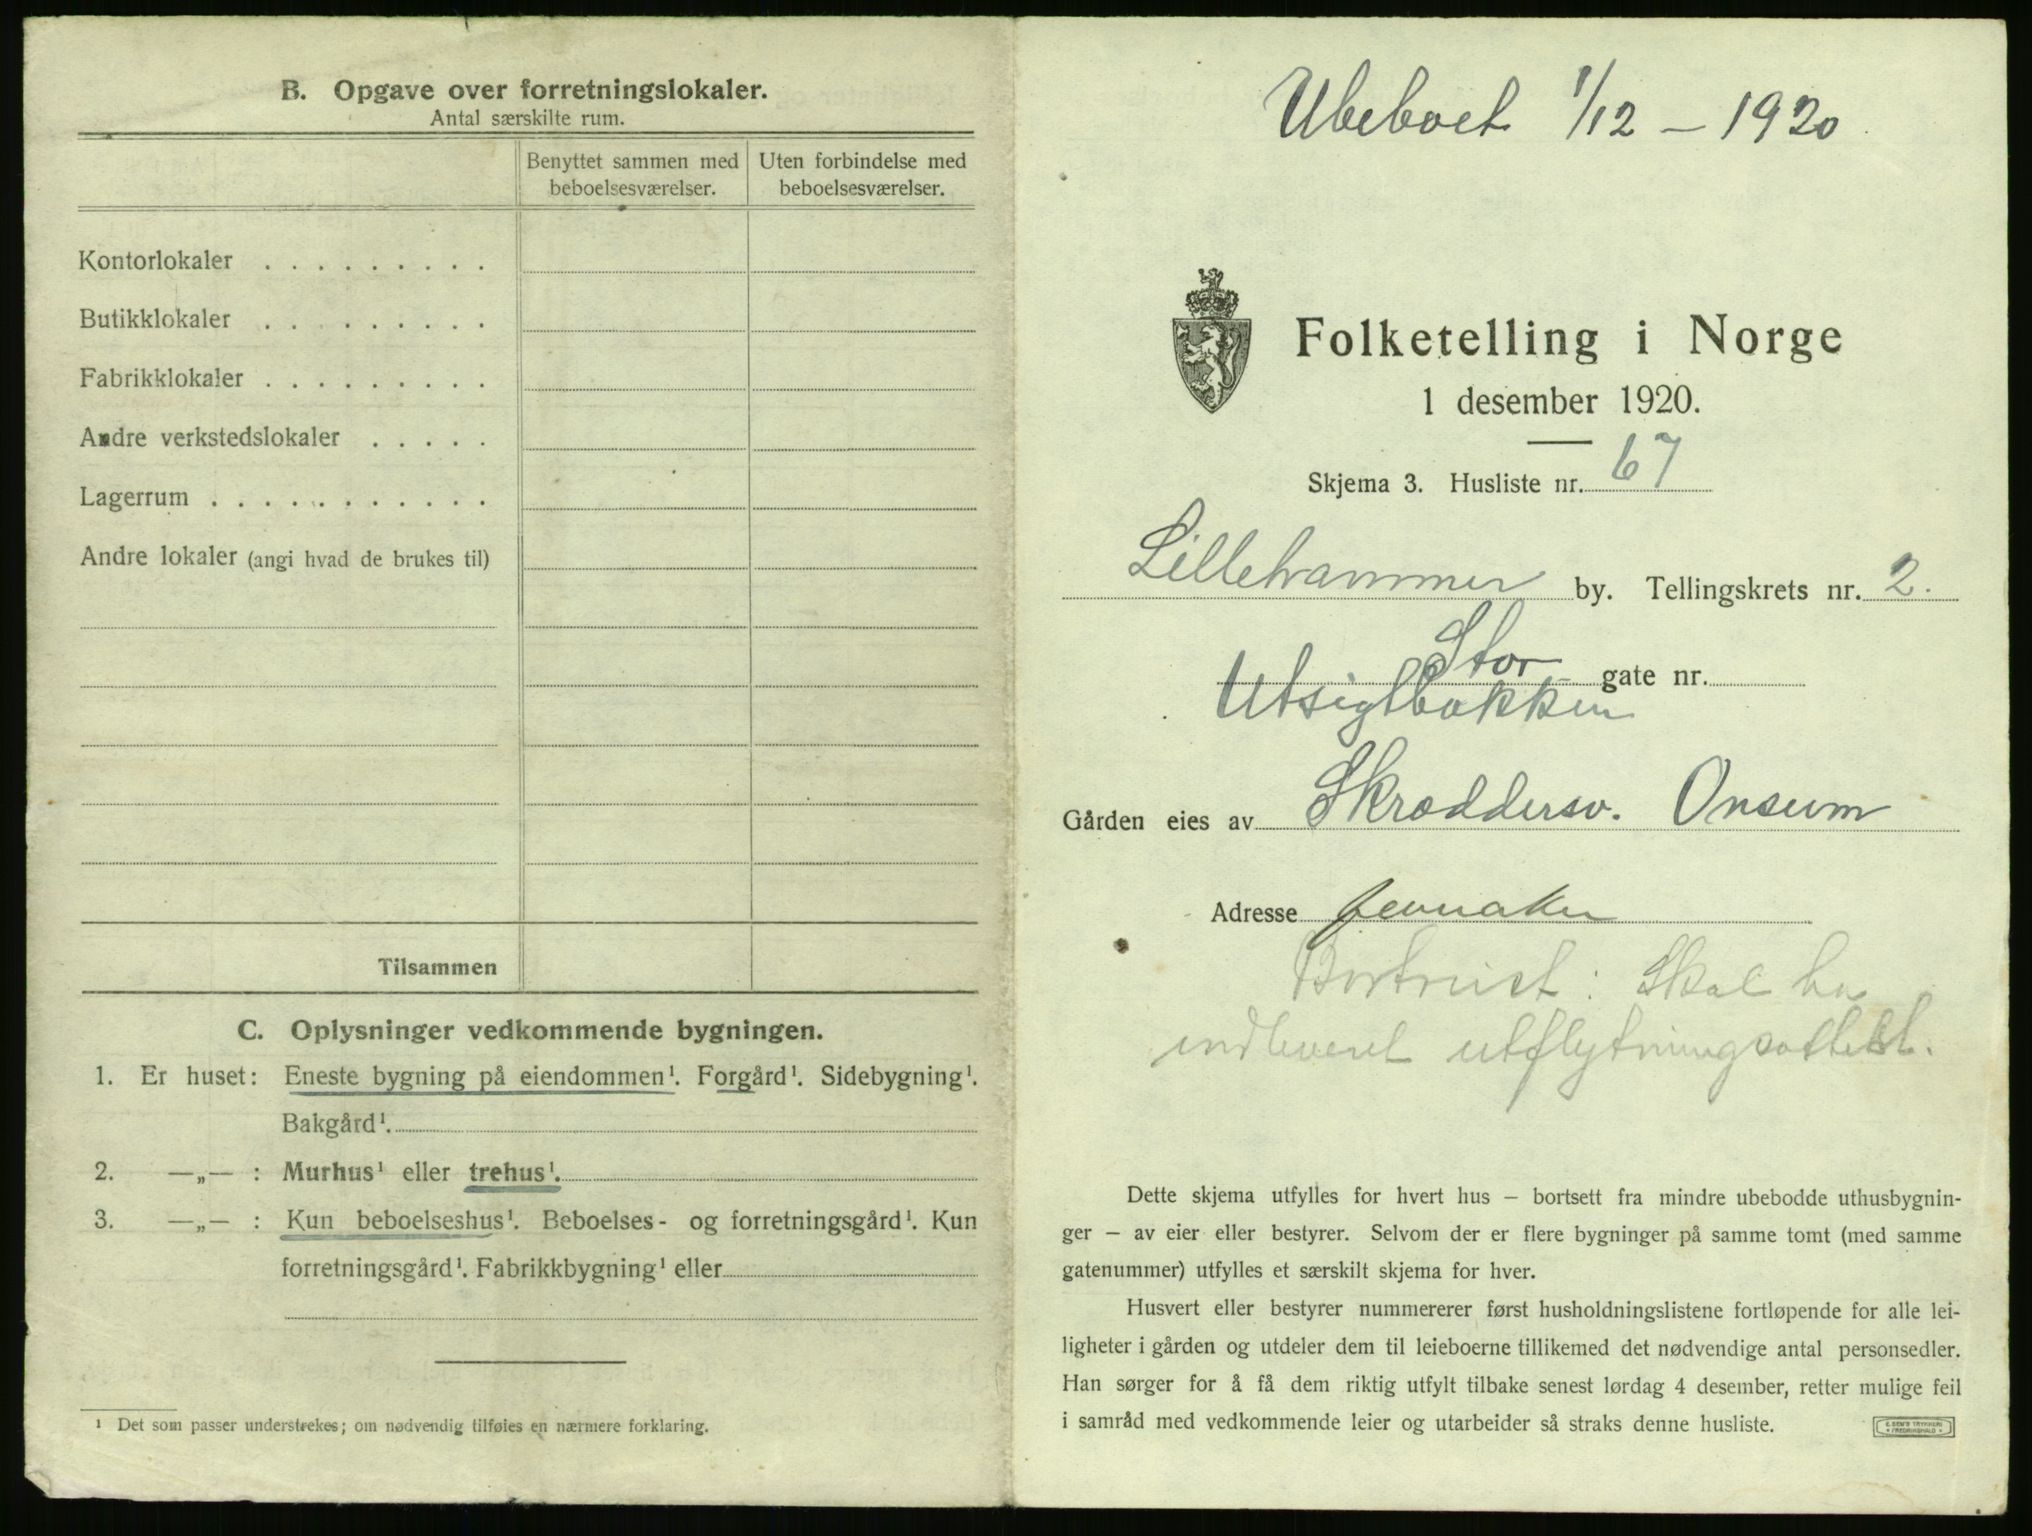 B. Opgave over forretningslokaler.
Antal særskilte rum.
Benyttet sammen med beboelsesværelser.
Uten forbindelse med beboelsesværelser.
Kontorlokaler . . . . . . . . .
Butikklokaler . . . . . . . . .
Fabrikklokaler . . . . . . . . .
Andre verkstedslokaler . . . . .
Lagerrum . . . . . . . . . . .
Andre lokaler (angi hvad de brukes til)
Tilsammen
C. Oplysninger vedkommende bygningen.
1. Er huset: Eneste bygning på eiendommen¹. Forgård¹. Sidebygning¹.
Bakgård¹.
2. —„— : Murhus¹ eller trehus¹.
3. —„— : Kun beboelseshus¹. Beboelses- og forretningsgård¹. Kun
forretningsgård¹. Fabrikkbygning¹ eller
¹ Det som passer understrekes; om nødvendig tilføies en nærmere forklaring.
Ubeboet 1/12 – 1920
Folketelling i Norge
1 desember 1920.
Skjema 3. Husliste nr. 67
Lillehammer by. Tellingskrets nr. 2.
Stor gate nr.
Utsigtbakken
Gården eies av Skræddersv. Onsum
Adresse Jevnaker
Bortreist: Skal ha
indleveret utflytningsattest.
Dette skjema utfylles for hvert hus – bortsett fra mindre ubebodde uthusbygnin-
ger – av eier eller bestyrer. Selvom der er flere bygninger på samme tomt (med samme
gatenummer) utfylles et særskilt skjema for hver.
Husvert eller bestyrer nummererer først husholdningslistene fortløpende for alle lei-
ligheter i gården og utdeler dem til leieboerne tillikemed det nødvendige antal personsedler.
Han sørger for å få dem riktig utfylt tilbake senest lørdag 4 desember, retter mulige feil
i samråd med vedkommende leier og utarbeider så straks denne husliste.